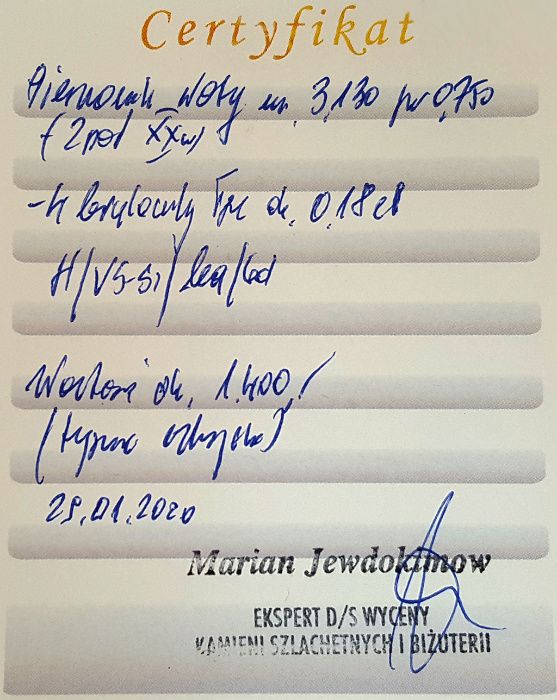 Certyfikat
Pierścionek złoty m. 3,130 pr 0,750
XXw
-4 brylanty łącz ok. 0,18 ct
H/VS-SI/
Wartość ok. 1.400,-
29.01.2020
Marian Jewdokimow
EKSPERT D/S WYCENY
KAMIENI SZLACHETNYCH I BIŻUTERII